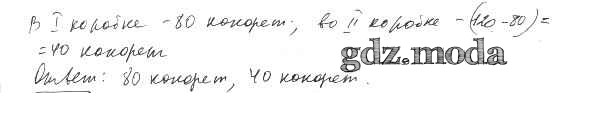 В I коробке - 80 конфет; во II коробке - (120-80) =
= 40 конфет
gdz.moda
Ответ: 80 конфет, 40 конфет.